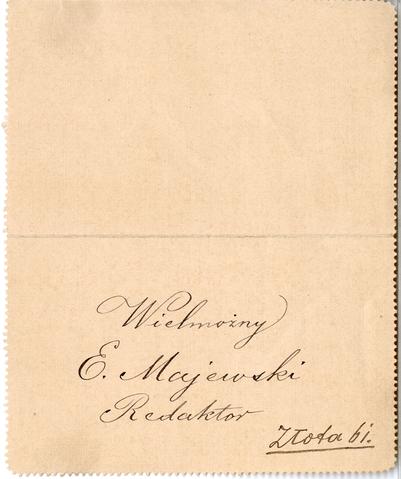 Wielmożny
E. Majewski
Redaktor
Złota 61.